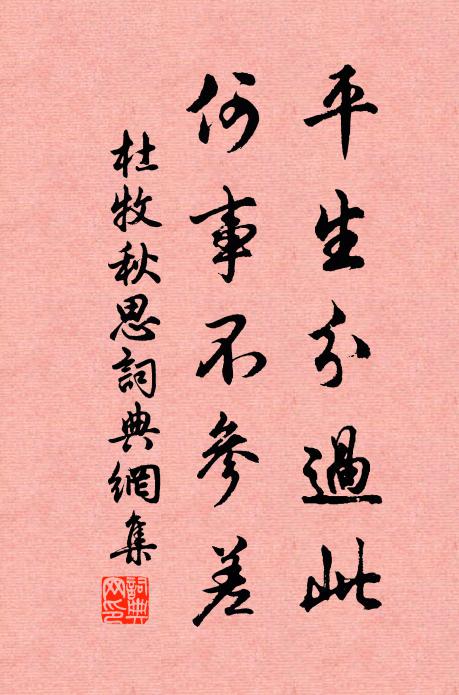 平生分過此
何事不參差
杜牧秋思詞典網集
詞典網印